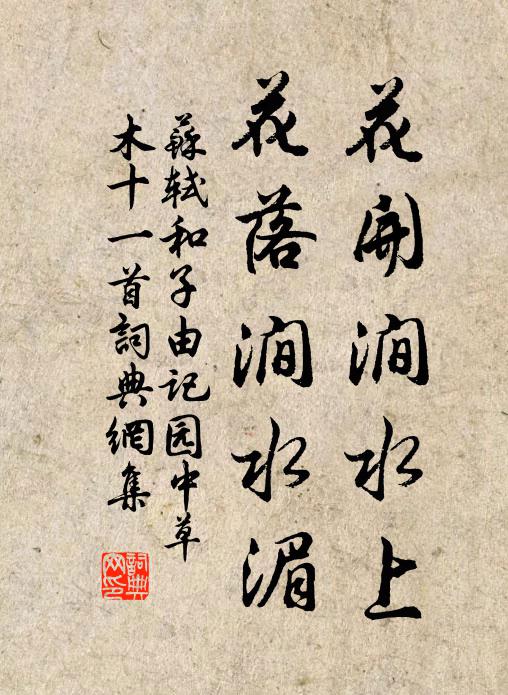 花開澗水上
花落澗水湄
蘇軾和子由記园中草
木十一首詞典網集
詞典
网印